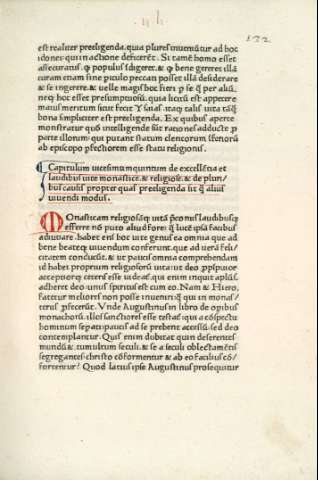 132
est realiter preeligenda. quia plures inueniūtur ad hoc
idonei qui in actione deficerēt. Si tamē homo esset
assecuratus. ꝙ populus īdigeret. & ꝙ bene gereret illā
curam etiam sine piculo peccati posset illā desiderare
& se ingerere. & uelle magis hoc fieri p se q̄ per aliū.
neq; hoc esset presumptuosū. quia licitū est appetere
maius meritum sicut fecit Ysaias. itaq; talis uita tāq̄
bona simpliciter est preeligenda. Ex quibus aperte
monstratur quō intelligende sūt rationes adducte p
parte illorum. qui putant statum clericorum ſſenorū
ab episcopo pfectiorem esse statu religionis.
Capitulum uicesimumquintum de excellētia et
laudibus uite monastice. & religiose. & de pluri/
bus causis propter quas preeligenda sit q̄ alius
uiuendi modus.
MOnasticam religiosāq; uitā pconiis laudibusq;
efferre nō puto aliud fore. q̄ lucē ipsā facibus
adiuuare. habet eni hoc uite genus ea omnia que ad
bene beateq; uiuendum conferunt. que ad uerā felici/
citatem conducūt. & ut paucis omnia comprehendam
id habet proprium religiosorū uita. ut deo ppīquior
acceptiorq; ceteris esse uideat. qui enim inquit apl'us.
adheret deo unus spiritus est cum eo. Nam & Hiero.
fatetur meliores non posse inueniri q̄ qui in monas/
teriis pfecerūt. Vnde Augustinus in libro de opibus
monachorū. illos sanctiores esse testat. qui a cōspectu
hominum sepati paucis ad se prebent accessū. sed deo
contemplantur. Quis enim dubitat quin deserentes
mundū &. tumultum seculi. & se a seculi oblectamētis
segregantes. christo cōformentur & ab eo facilius cō/
fortentur? Quod latius ipse Augustinus prosequitur